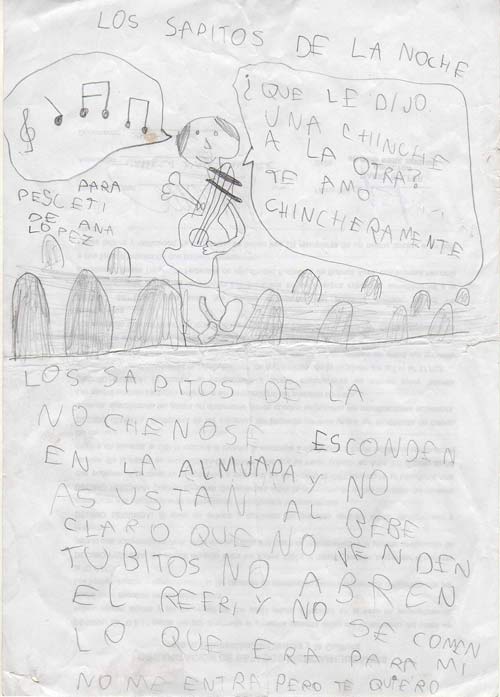 LOS SAPITOS DE LA NOCHE
¿QUE LE DIJO
UNA CHINCHE
A LA OTRA?
TE AMO
CHINCHERAMENTE
PARA
PESCETI
DE ANA
LOPEZ
LOS SAPITOS DE LA
NO CHENOSE ESCONDEN
EN LA ALMUADA Y NO
ASUSTAN AL BEBE
CLARO QUE NO VENDEN
TUBITOS NO ABREN
EL REFRI Y NO SE COMEN
LO QUE ERA PARA MI
NO ME ENTRA PERO TE QUIERO